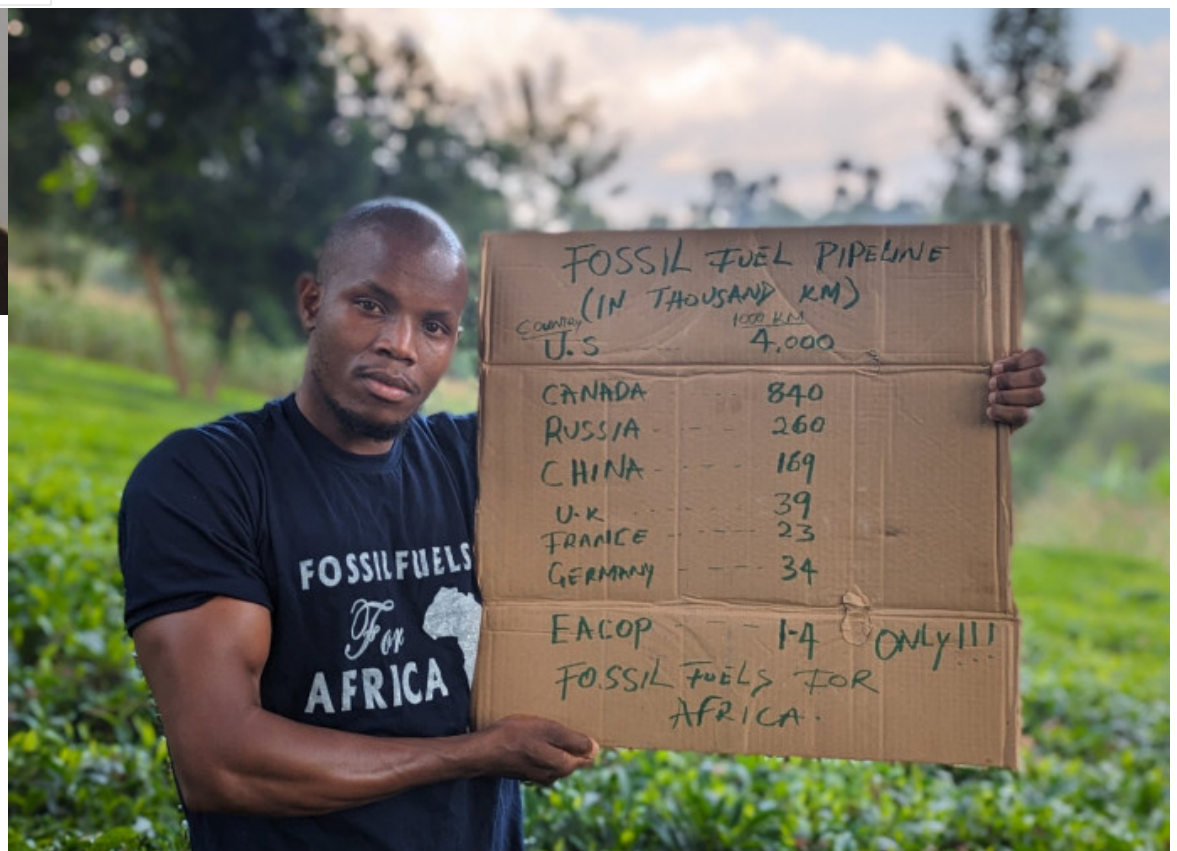 FOSSIL FUELS
For
AFRICA
FOSSIL FUEL PIPELINE
(IN THOUSAND KM)
COUNTRY 1000 KM
U.S 4,000
CANADA --- 840
RUSSIA ---- 260
CHINA ---- 169
U.K ---- 39
FRANCE ---- 23
GERMANY --- 34
EACOP --- 1-4 ONLY!!!
FOSSIL FUELS FOR
AFRICA.